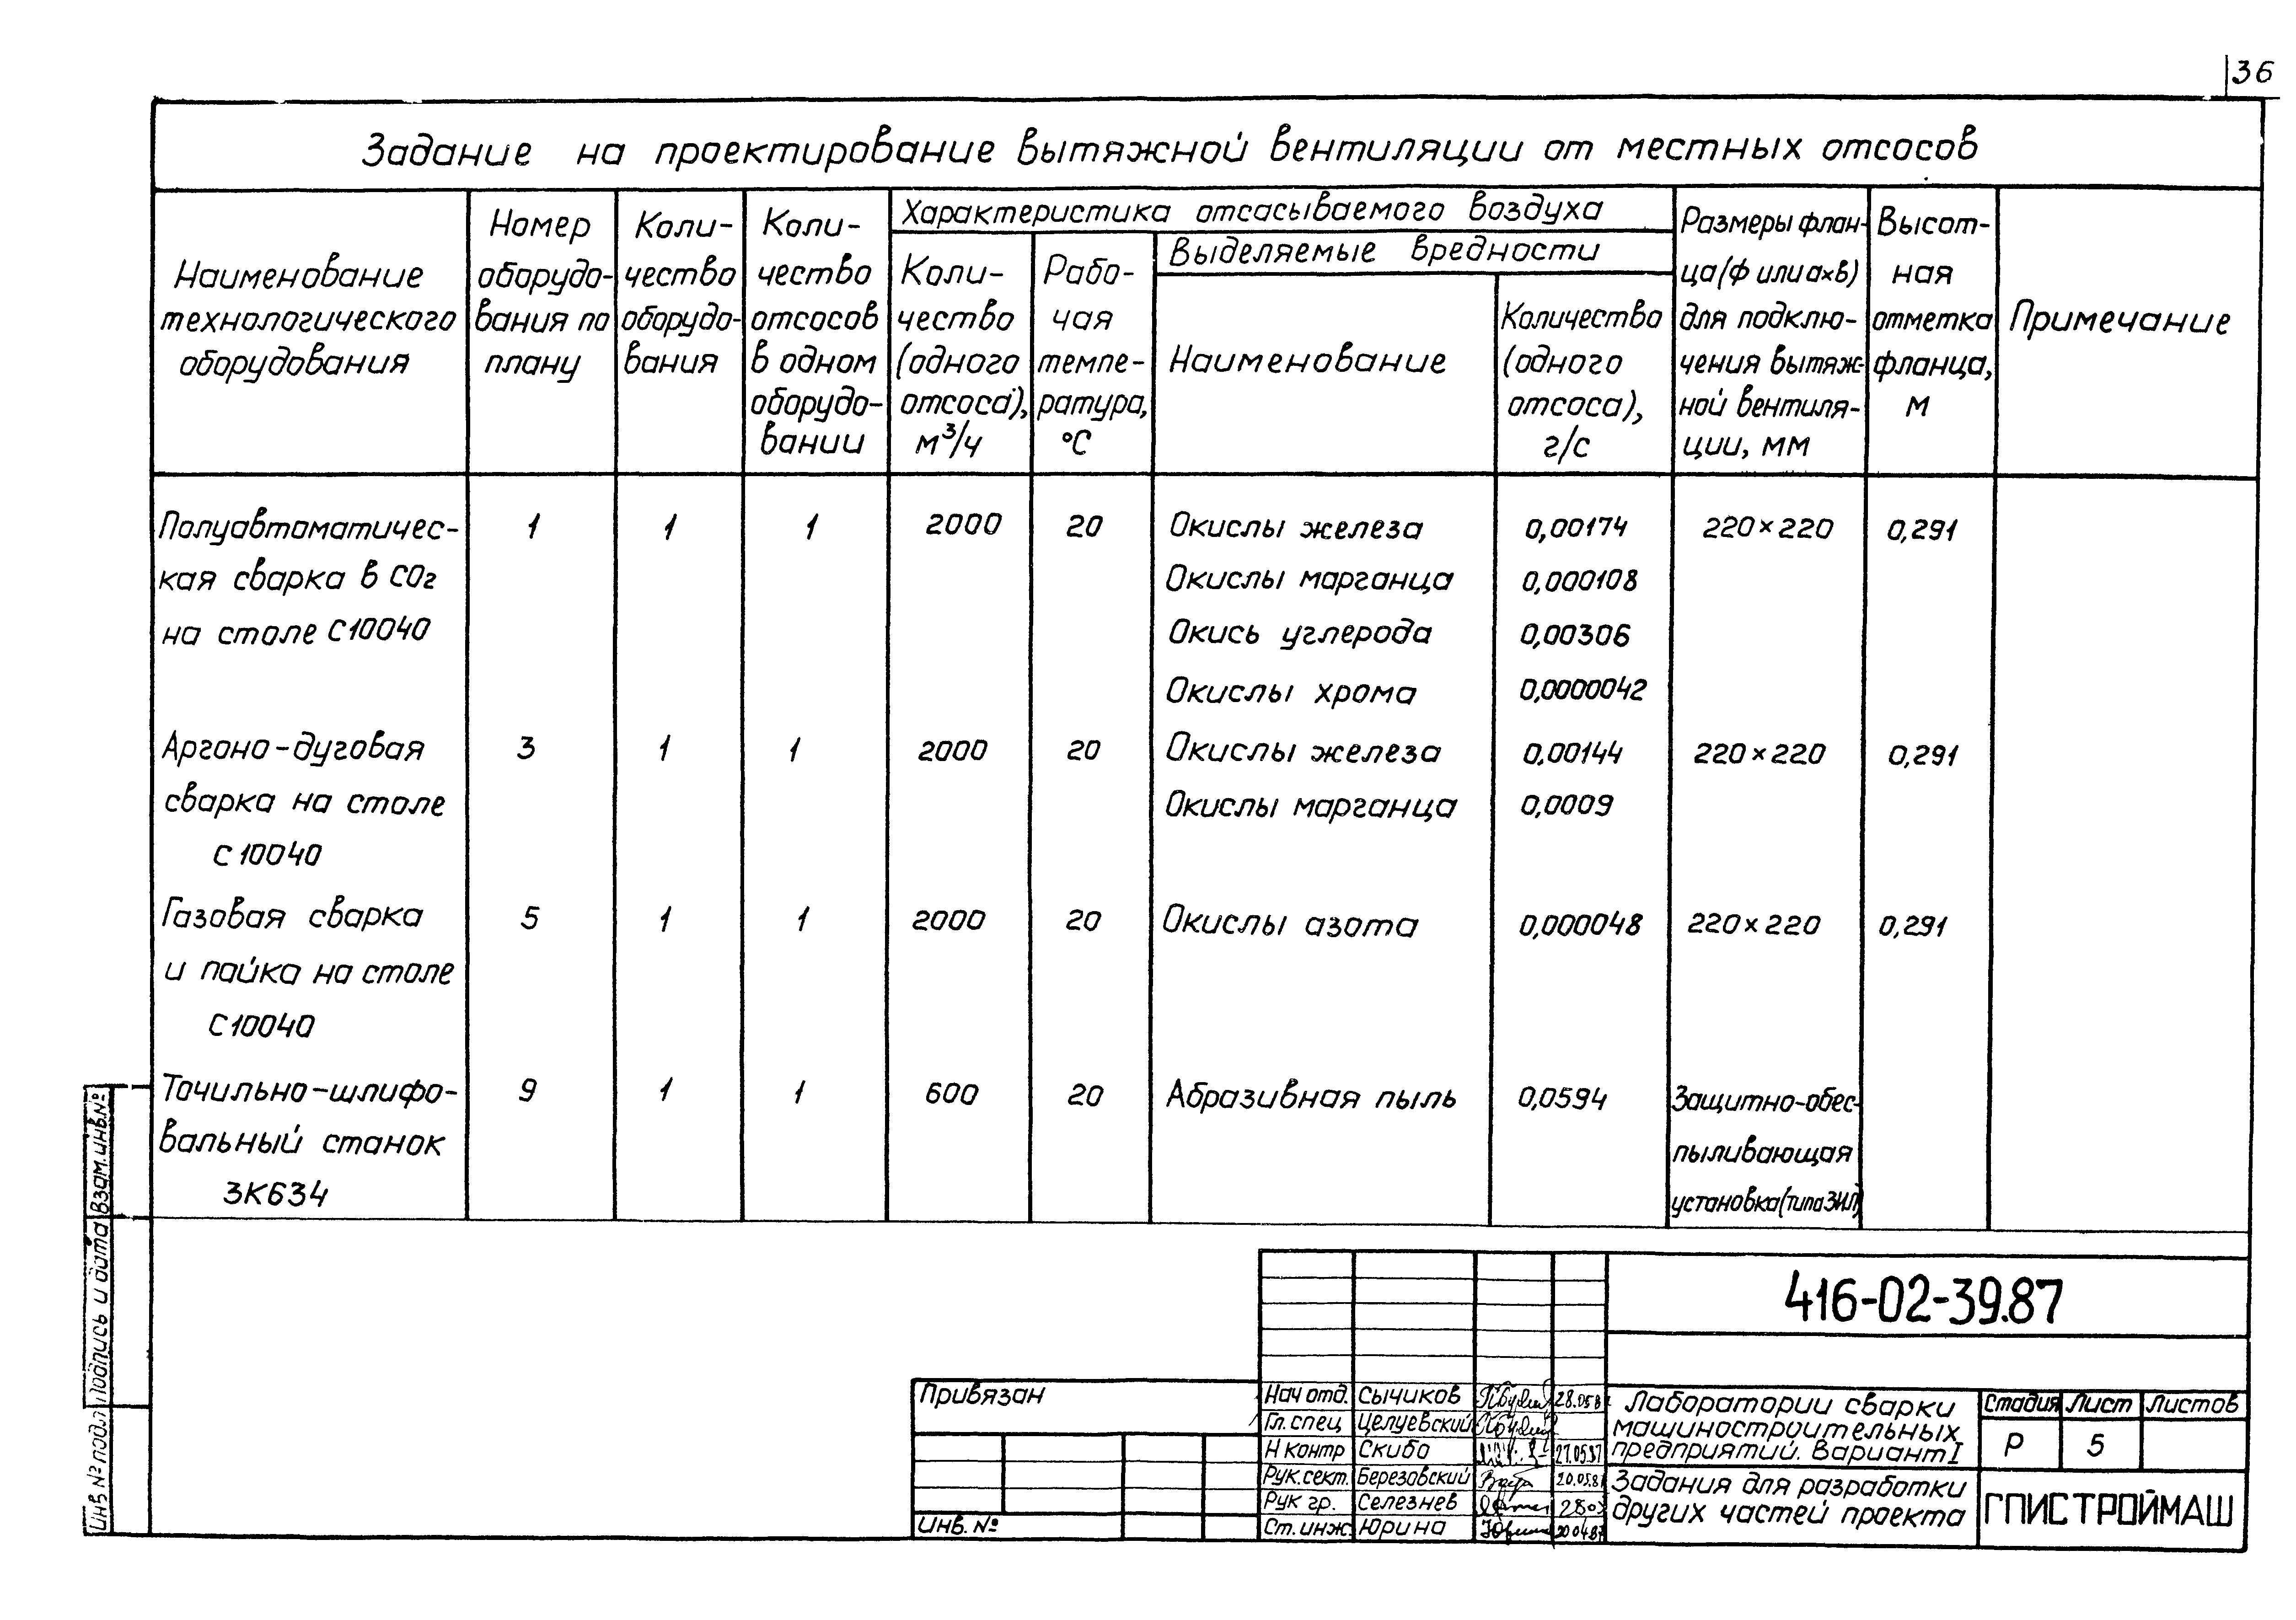 36
Задание на проектирование вытяжной вентиляции от местных отсосов
Наименование
технологического
оборудования
Номер
оборудо-
вания по
плану
Коли-
чество
оборудо-
вания
Коли-
чество
отсосов
в одном
оборудо-
вании
Характеристика отсасываемого воздуха
Коли-
чество
(одного
отсоса),
м³/ч
Рабо-
чая
темпе-
ратура,
°С
Выделяемые вредности
Наименование
Количество
(одного
отсоса),
г/с
Размеры флан-
ца (ф или ахв)
для подклю-
чения вытяж-
ной вентиля-
ции, мм
Высот-
ная
отметка
фланца,
м
Примечание
Полуавтоматичес- 1 1 1 2000 20 Окислы железа 0,00174 220×220 0,291
кая сварка в СО₂ Окислы марганца 0,000108
на столе С10040 Окись углерода 0,00306
Окислы хрома 0,0000042
Аргоно-дуговая 3 1 1 2000 20 Окислы железа 0,00144 220×220 0,291
сварка на столе Окислы марганца 0,0009
С10040
Газовая сварка 5 1 1 2000 20 Окислы азота 0,000048 220×220 0,291
и пайка на столе
С10040
Точильно-шлифо- 9 1 1 600 20 Абразивная пыль 0,0594 Защитно-обес-
вальный станок пыливающая
3К634 установка (типа ЗИЛ)
Взам.инв.№
Подпись и дата
Инв № подл
416-02-39.87
Привязан
Инв. №
Нач отд. Сычиков 28.05.8
Гл. спец Целуевский
Н контр Скибо 27.05.87
Рук. сект. Березовский 20.05.8
Рук гр. Селезнев
Ст. инж. Юрина 20.04.87
Лаборатории сварки
машиностроительных
предприятий. Вариант I
Стадия Лист Листов
Р 5
Задания для разработки
других частей проекта
ГПИСТРОЙМАШ